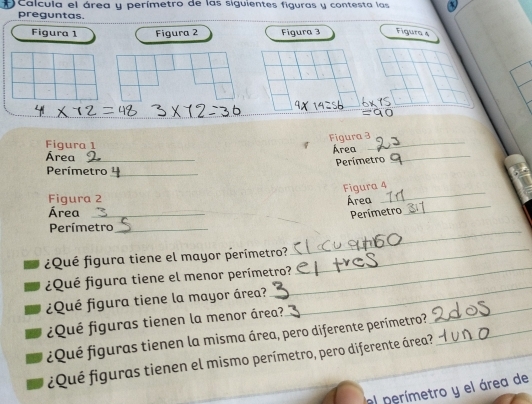 Calcula el área y perímetro de las siguientes figuras y contesta las
preguntas.
Figura 1 Figura 2 Figura 3 Figura 4
4 x 12 = 48 3 x 12 = 36 4x14=56 6x15
=90
Figura 1
Área 2
Perímetro 4
Figura 2
Área 3
Perímetro 5
Figura 3
Área 23
Perímetro 9
Figura 4
Área
Perímetro
¿Qué figura tiene el mayor perímetro? el cuatro
¿Qué figura tiene el menor perímetro? el tres
¿Qué figura tiene la mayor área? 3
¿Qué figuras tienen la menor área? 3
¿Qué figuras tienen la misma área, pero diferente perímetro? 2dos
¿Qué figuras tienen el mismo perímetro, pero diferente área? 1uno
el perímetro y el área de